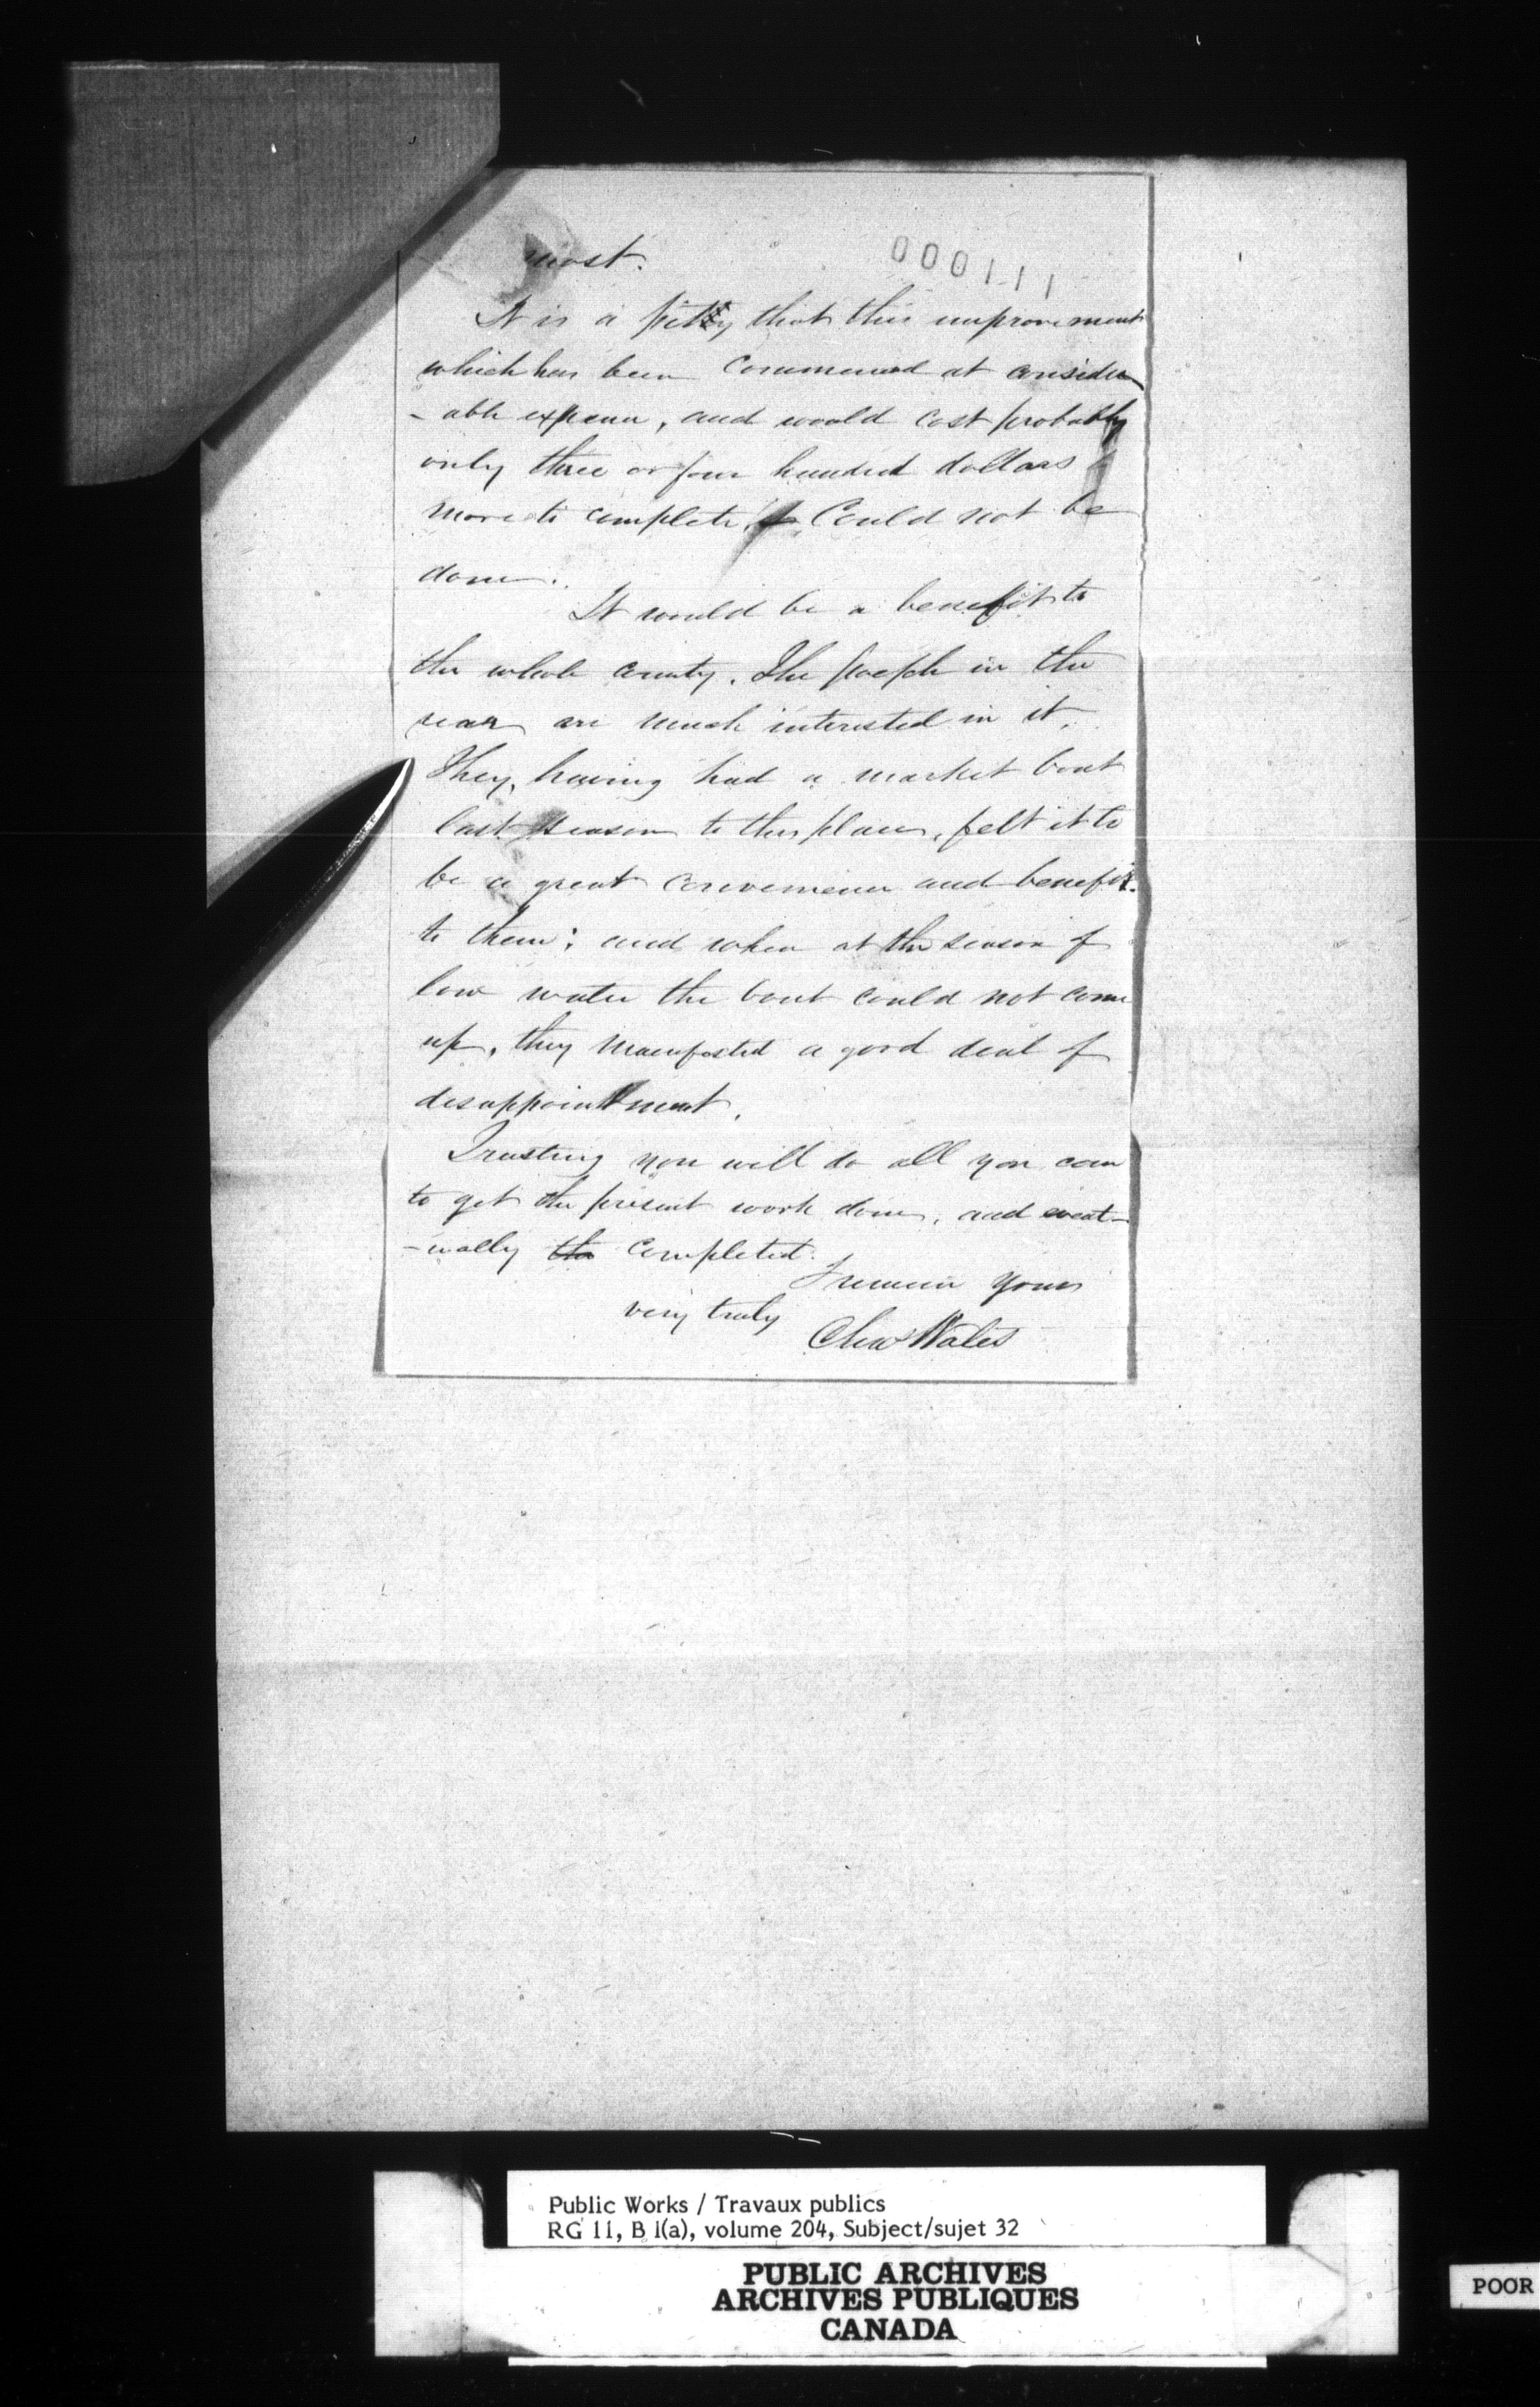 most.
000111
It is a pitty that this improvement
which has been commenced at consider
- able expense, and would cost probably
only three or four hundred dollars
more to complete, Could not be
done.
It would be a benefit to
the whole county. The people in the
rear are much interested in it.
They, having had a market boat
last season to this place, felt it to
be a great convenience and benefit
to them; and when at the season of
low water the boat could not come
up, they manifested a good deal of
disappointment.
Trusting you will do all you can
to get the present work done, and event-
-ually the completed.
I remain yours
very truly
Chas Wales
Public Works / Travaux publics
RG 11, B 1(a), volume 204, Subject/sujet 32
PUBLIC ARCHIVES
ARCHIVES PUBLIQUES
CANADA
POOR